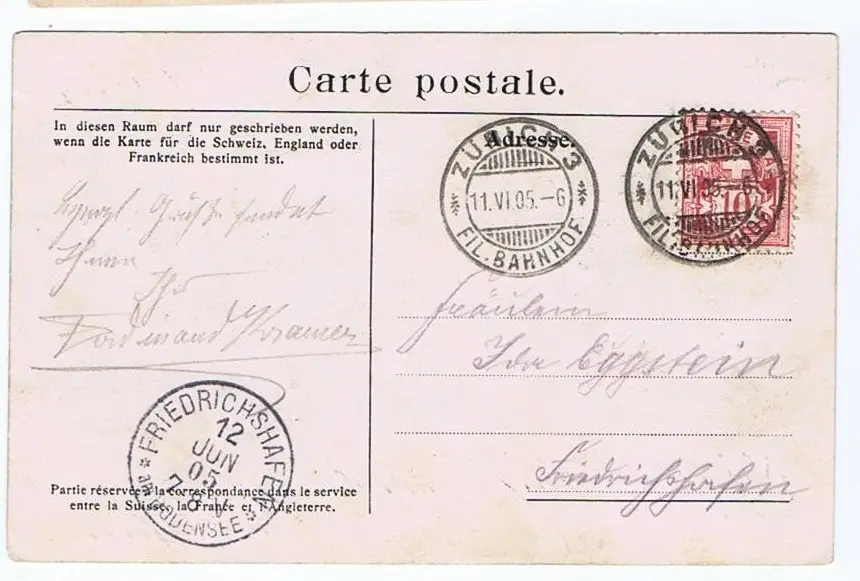 Carte postale.
In diesen Raum darf nur geschrieben werden,
wenn die Karte für die Schweiz, England oder
Frankreich bestimmt ist.
Grüße sendet
Ihnen
Ihr
Ferdinand Kramer
Partie réservée à la correspondance dans le service
entre la Suisse, la France et l'Angleterre.
FRIEDRICHSHAFEN
12
JUN
05
7-8 V
* AM BODENSEE *
Adresse.
ZÜRICH 3
11.VI.05.–6
FIL. BAHNHOF
ZÜRICH 3
11.VI.05.–6
FIL. BAHNHOF
10
Fräulein
Ida Eggstein
Friedrichshafen